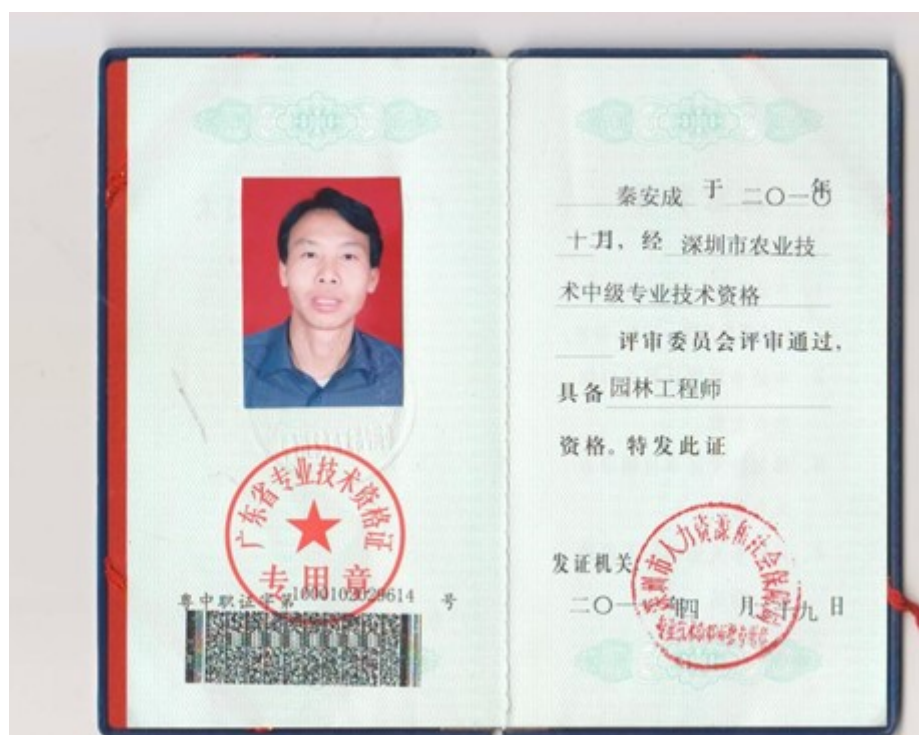 广东省专业技术资格证
专用章
粤中职证字第1000102029614号
秦安成 于 二〇一〇年
十月、经 深圳市农业技
术中级专业技术资格
评审委员会评审通过，
具备 园林工程师
资格。特发此证
发证机关：
深圳市人力资源和社会保障局
二〇一 年四 月 十九 日